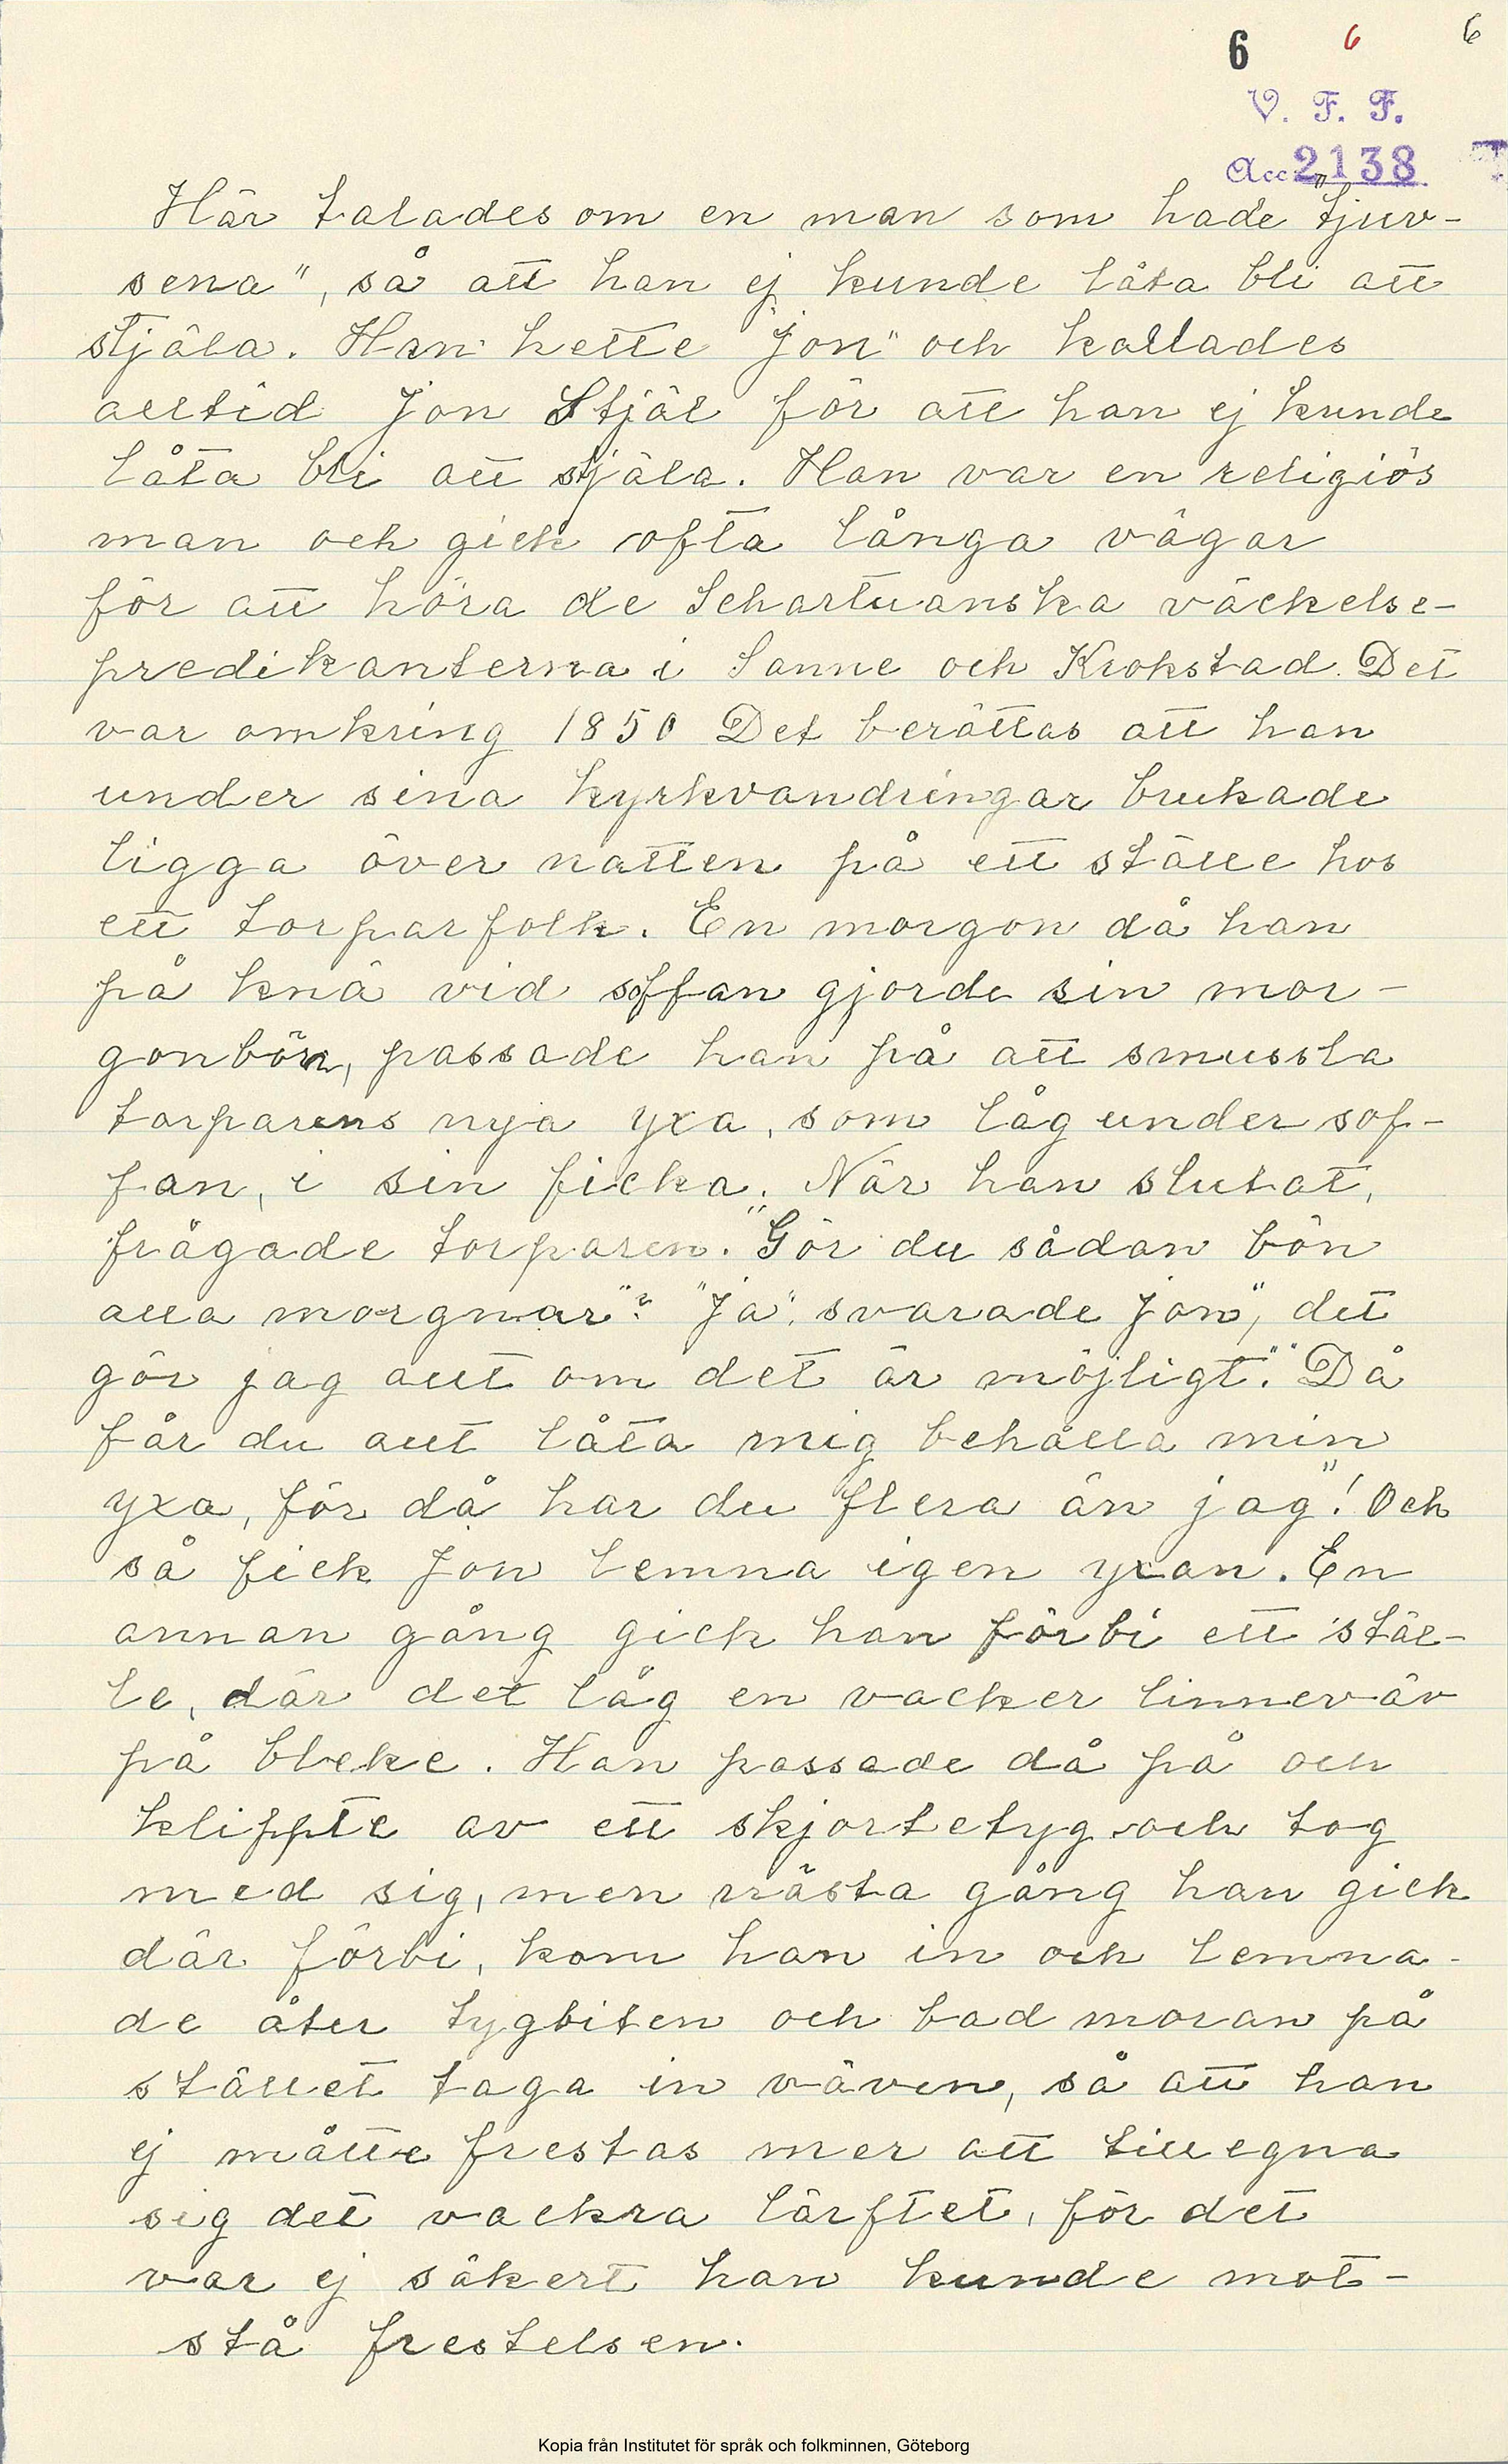 6 6 6
V. F. F.
Acc 2138
Här talades om en man som hade "tjuv-
sena", så att han ej kunde låta bli att
stjäla. Han hette "Jon" och kallades
alltid Jon Stjäl för att han ej kunde
låta bli att stjäla. Han var en religiös
man och gick ofta långa vägar
för att höra de Schartuanska väckelse-
predikanterna i Sanne och Krokstad. Det
var omkring 1850 Det berättas att han
under sina kyrkvandringar brukade
ligga över natten på ett ställe hos
ett torparfolk. En morgon då han
på knä vid soffan gjorde sin mor-
gonbön, passade han på att smussla
torparens nya yxa, som låg under sof-
fan, i sin ficka. När han slutat,
frågade torparen. "Gör du sådan bön
alla morgnar"? "Ja", svarade Jon", det
gör jag allt om det är möjligt." "Då
får du allt låta mig behålla min
yxa, för då har du flera än jag"! Och
så fick Jon lemna igen yxan. En
annan gång gick han förbi ett stäl-
le, där det låg en vacker linneväv
på bleke. Han passade då på och
klippte av ett skjortetyg och tog
med sig, men nästa gång han gick
där förbi, kom han in och lemna-
de åter tygbiten och bad moran på
stället taga in väven, så att han
ej måtte frestas mer att tillegna
sig det vackra lärftet, för det
var ej säkert han kunde mot-
stå frestelsen.
Kopia från Institutet för språk och folkminnen, Göteborg